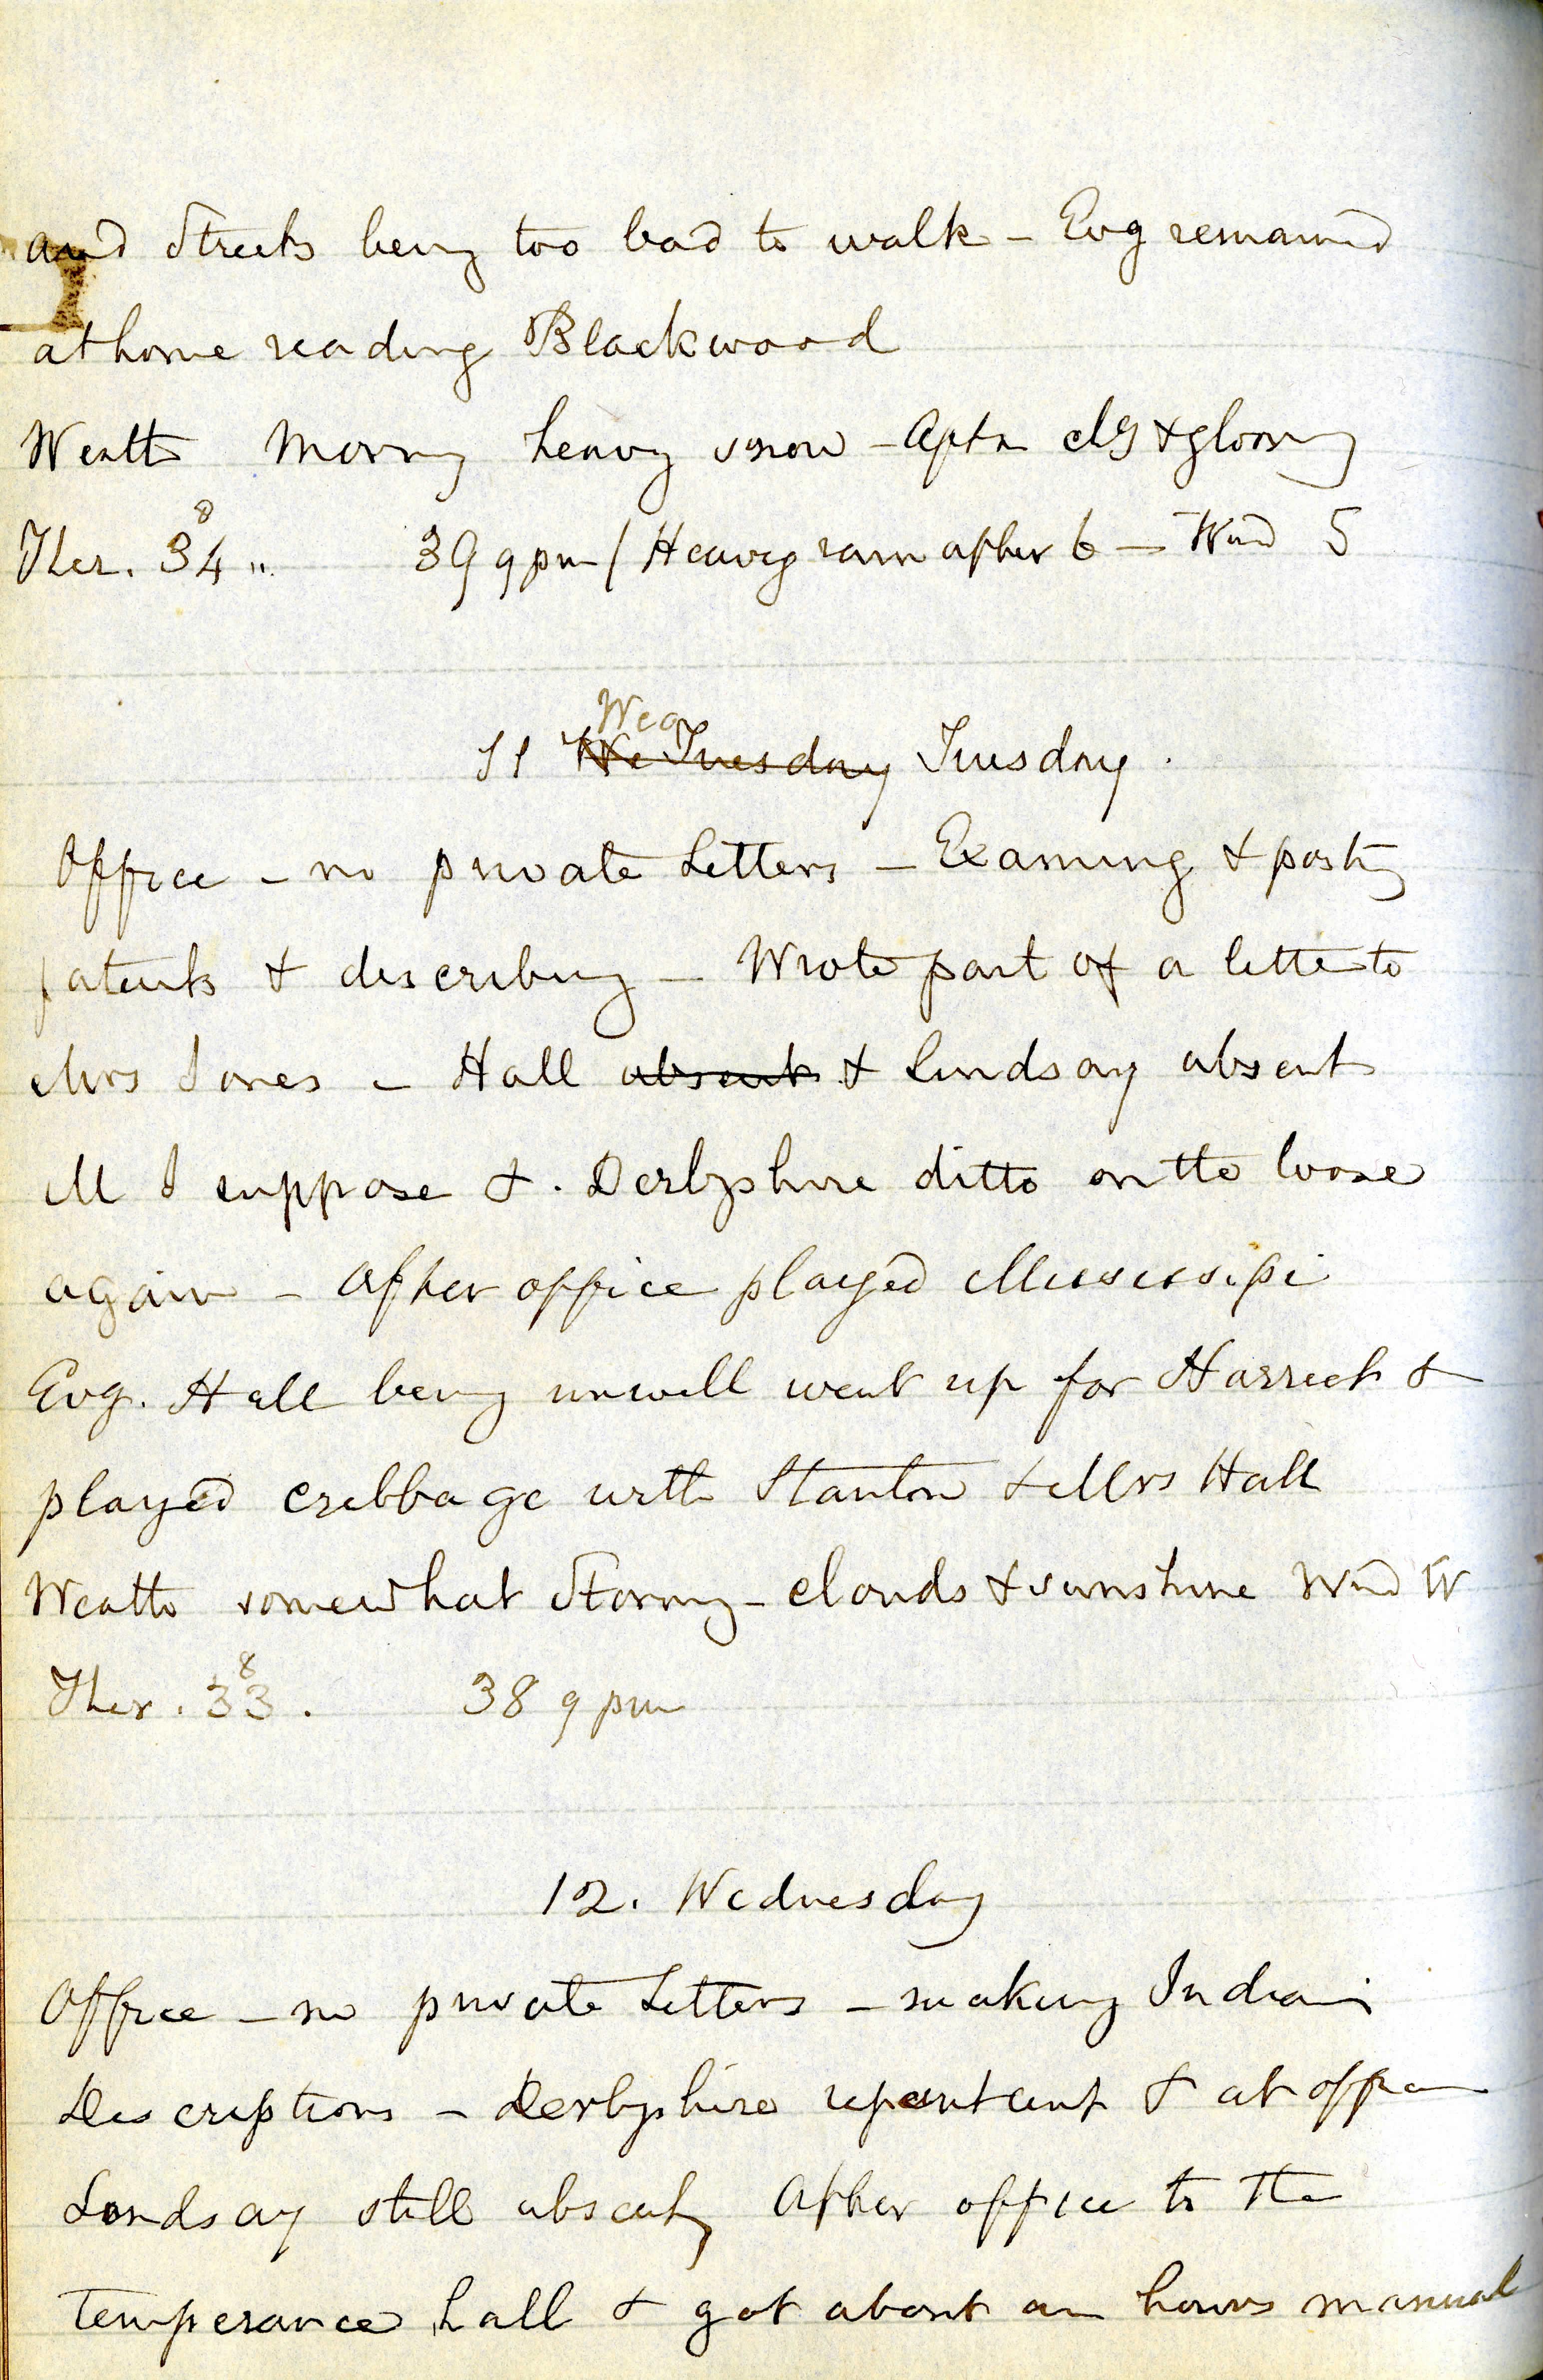 and Streets being too bad to walk - Evg remained
at home reading Blackwood
Weath Morng heavy snow - Aftn cldy & gloomy
Ther. 34 8 " 39 9 pm / Heavy rain after 6 - Wind S
Wed
11 We Tuesday Tuesday.
Office - no private Letters - Examing & postg
patents & describing - Wrote part of a letter to
Mrs Jones - Hall absent & Lindsay absent
ill I suppose & . Derbyshire ditto on the loose
again - After office played Missisipi
Evg. Hall being unwell went up for Harriet &
played cribbage with Stanton & Mrs Hall
Weath somewhat Stormy - clouds & sunshine Wind W
Ther. 33 8 . 38 9 pm
12. Wednesday
Office - no private Letters - making Indian
Descriptions - Derbyshire repentent & at office
Lindsay still absent, After office to the
Temperance hall & got about an hours manual